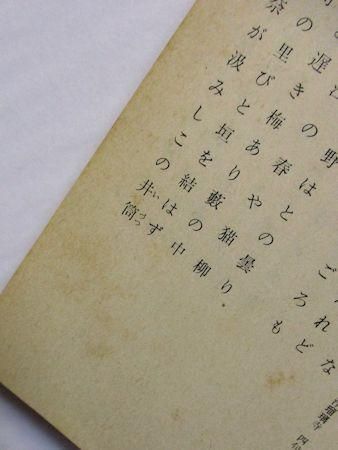 れど
ごろも
野はとの曇り。
の春や猫柳
遅き梅あり藪の中
の里びと垣を結はず
奈が汲みしこの井筒
瑠璃寺